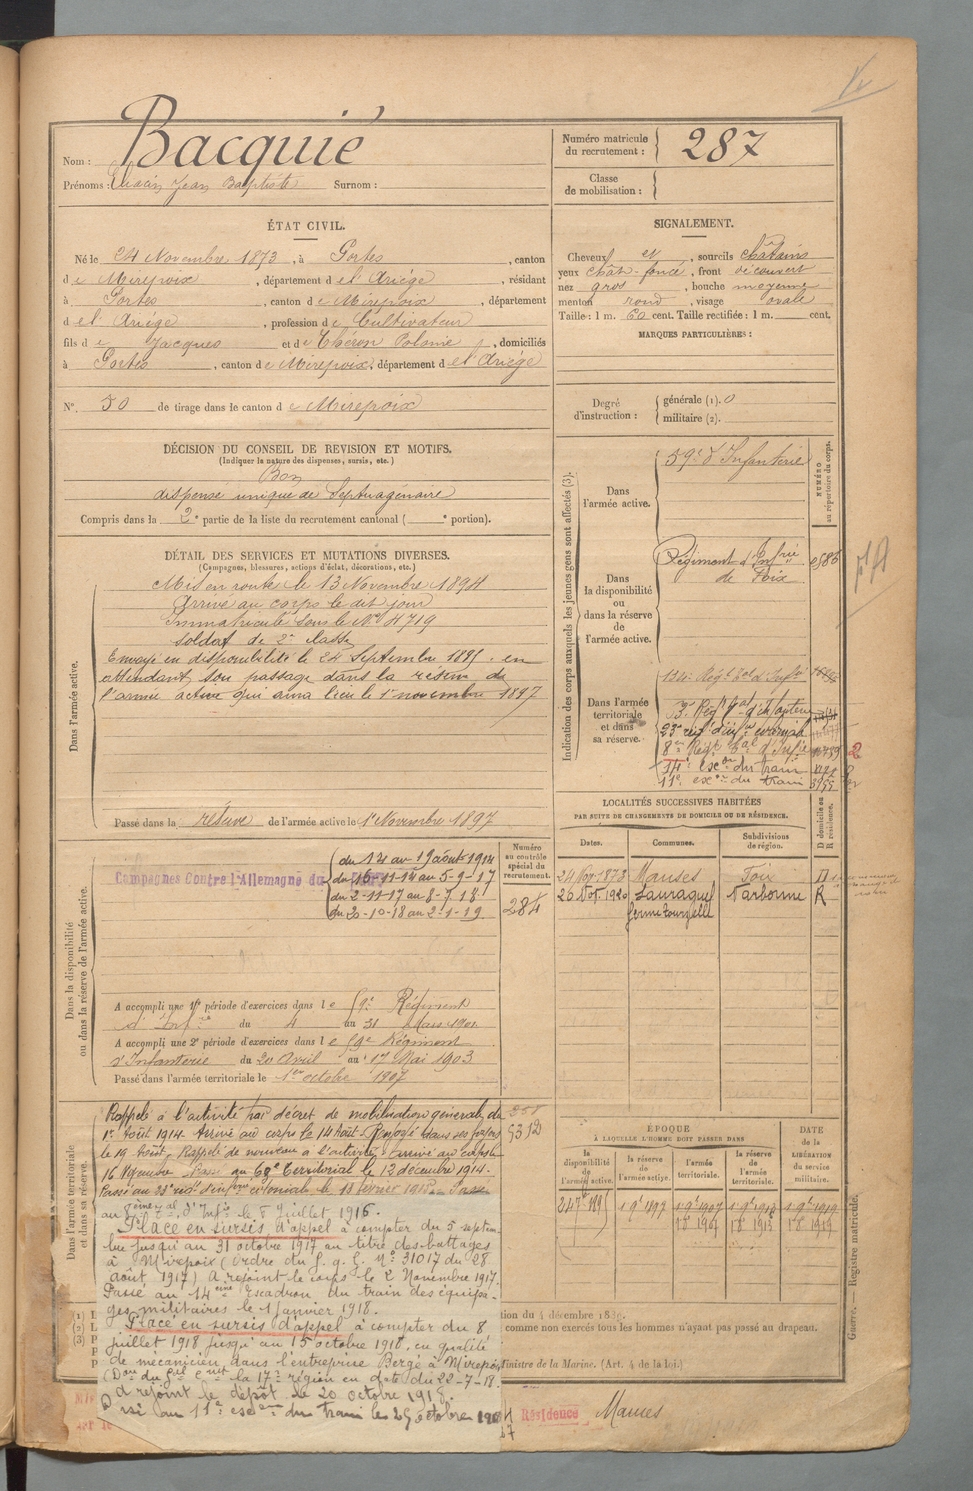 Nom : Bacquié
Prénoms : Jean Baptiste Surnom :
Numéro matricule du recrutement : 287
Classe de mobilisation :
ÉTAT CIVIL.
Né le 24 Novembre 1873, à Portes, canton
de Mirepoix, département de l'Ariége, résidant
à Portes, canton de Mirepoix, département
de l'Ariége, profession de Cultivateur
fils de Jacques et de Théron Polonie, domiciliés
à Portes, canton de Mirepoix, département de l'Ariége
N° 50 de tirage dans le canton de Mirepoix
SIGNALEMENT.
Cheveux et, sourcils châtains
yeux chât-foncé, front découvert
nez gros, bouche moyenne
menton rond, visage ovale
Taille : 1 m. 60 cent. Taille rectifiée : 1 m. cent.
MARQUES PARTICULIÈRES :
Degré d'instruction : générale (1). 0
militaire (2).
DÉCISION DU CONSEIL DE REVISION ET MOTIFS.
(Indiquer la nature des dispenses, sursis, etc.)
Bon
dispensé unique de Septuagénaire
Compris dans la 2e partie de la liste du recrutement cantonal ( e portion).
DÉTAIL DES SERVICES ET MUTATIONS DIVERSES.
(Campagnes, blessures, actions d'éclat, décorations, etc.)
Dans l'armée active.
Mis en route le 13 Novembre 1894
Arrivé au corps le dit jour
Immatriculé sous le N° 4719
soldat de 2e classe
Envoyé en disponibilité le 24 Septembre 1895 en
attendant son passage dans la réserve de
l'armée active qui aura lieu le 1er novembre 1897
Passé dans la réserve de l'armée active le 1er Novembre 1897
Indication des corps auxquels les jeunes gens sont affectés (3).
NUMÉRO au répertoire du corps.
Dans l'armée active.
59e d'Infanterie
Dans la disponibilité ou dans la réserve de l'armée active.
Régiment d'Infrie
de Foix
Dans l'armée territoriale et dans sa réserve.
134e Régt Tal d'Infie
23e régt d'infie coloniale
8e Régt Tal d'Infie
14e escon du train
11e escon du train
LOCALITÉS SUCCESSIVES HABITÉES
PAR SUITE DE CHANGEMENTS DE DOMICILE OU DE RÉSIDENCE.
Dates. Communes. Subdivisions de région. D domicile ou R résidence.
Manses Foix D
26 Nov. 1920 Lauraguel Narbonne R
Dans la disponibilité ou dans la réserve de l'armée active.
Numéro au contrôle spécial du recrutement.
284
Campagnes Contre l'Allemagne du
du 14 au 19 août 1914
du 16-11-14 au 5-9-17
du 2-11-17 au 8-7-18
du 20-10-18 au 2-1-19
A accompli une 1re période d'exercices dans le 59e Régiment
d'Infrie du 4 au 31 Mars 1901
A accompli une 2e période d'exercices dans le 59e Régiment
d'Infanterie du 20 Avril au 17 Mai 1903
Passé dans l'armée territoriale le 1er octobre 1907
Dans l'armée territoriale et dans sa réserve.
Rappelé à l'activité par décret de mobilisation générale du
1er Août 1914. Arrivé au corps le 14 Août. Renvoyé dans ses foyers
le 19 Août. Rappelé de nouveau à l'activité. Arrivé au corps le
16 Novembre. Passé au 68e Territorial le 12 décembre 1914.
Passé au 23e régt d'infrie coloniale le 13 février 1915. Passé
au 8ème Tal d'Infie le 8 juillet 1916.
Placé en sursis d'appel à compter du 5 septem-
bre jusqu'au 31 octobre 1917 au titre des battages
à Mirepoix (ordre du S. g. E. N° 31017 du 28
août 1917) A rejoint le corps le 2 Novembre 1917.
Passé au 14ème Escadron du train des équipa-
ges militaires le 1 Janvier 1918.
Placé en sursis d'appel à compter du 8
juillet 1918 jusqu'au 15 octobre 1918, en qualité
de mécanicien dans l'entreprise Bergé à Mirepoix
(Don du Gal Cmdt la 17e région en date du 22-7-18.
A rejoint le dépôt le 20 octobre 1918.
Passé au 11e escon du train le 29 octobre 1918
ÉPOQUE
À LAQUELLE L'HOMME DOIT PASSER DANS
la disponibilité de l'armée active. la réserve de l'armée active. l'armée territoriale. la réserve de l'armée territoriale.
DATE de la LIBÉRATION du service militaire.
24 7bre 1895 1 9bre 1897
tion du 4 décembre 18
comme non exercés tous les hommes n'ayant pas passé au drapeau.
Ministre de la Marine. (Art. 4 de la loi.)
Résidence Manses
Guerre. — Registre matricule.